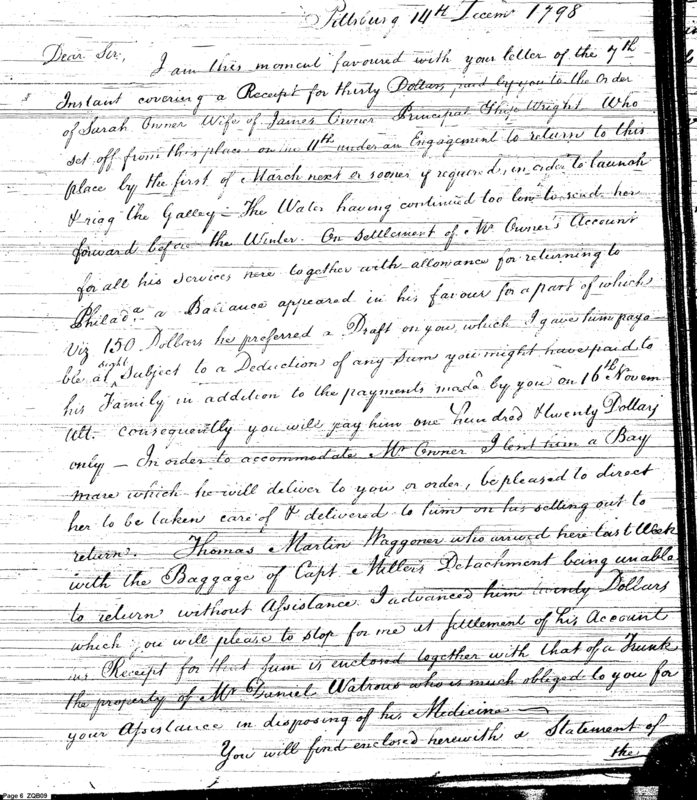 Pittsburg 14th Decemr 1798
Dear Sir, I am this moment favoured with your letter of the 7th
Instant covering a Receipt for thirty Dollars paid by you to the order
of Sarah Owner Wife of James Owner Principal Ship Wright Who
set off from this place on the 11th under an Engagement to return to this
place by the first of March next or sooner if required, in order to launch
& rigg the Galley – The Water having continued too low to send her
forward before the Winter. On settlement of Mr Owner's Account
for all his services here together with allowance for returning to
Philada a Ballance appeared in his favour for a part of which
Viz 150 Dollars he preferred a Draft on you, which I gave him paya-
ble at sight Subject to a Deduction of any sum you might have paid to
his Family in addition to the payments made by you on 16th Novem
Ult. consequently you will pay him one hundred & twenty Dollars
only – In order to accommodate Mr Owner I lent him a Bay
mare which he will deliver to you or order, be pleased to direct
her to be taken care of & delivered to him on his setting out to
return. Thomas Martin Waggoner who arrived here last Week
with the Baggage of Capt Millers Detachment being unable
to return without Assistance I advanced him twenty Dollars
which you will please to stop for me at Settlement of his Account
his Receipt for that sum is enclosed together with that of a Trunk
the property of Mr Daniel Watrous who is much obliged to you for
your Assistance in disposing of his Medicine –
You will find enclosed herewith a Statement of
the
Page 6 ZQB09